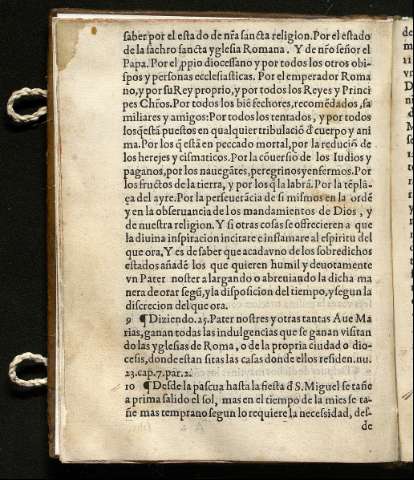 saber por el esta do de nr̃a sancta religion. Por el estado
de la sachro sancta yglesia Romana. Y de nr̃o señor el
Papa. Por el ꝓpio diocessano y por todos los otros obi-
spos y personas ecclesiasticas. Por el emperador Roma
no, y por su Rey proprio, y por todos los Reyes y Princi
pes Chr̃os. Por todos los biẽ fechores, recomẽdados, fa
miliares y amigos: Por todos los tentados, y por todos
los q̃ está puestos en qualquier tribulaciõ đ cuerpo y ani
ma. Por los q̃ està en peccado mortal, por la reduciõ de
los herejes y cismaticos. Por la cõuersiõ de los Iudios y
paganos, por los nauegãtes, peregrinos y enfermos. Por
los fructos de la tierra, y por los q̃ la labrã. Por la tẽplã-
ça del ayre. Por la perseuerãcia de si mismos en la ordẽ
y en la obseruancia de los mandamientos de Dios, y
de nuestra religion. Y si otras cosas se offrecieren a que
la diuina inspiracion incitare e inflamare al espiritu del
que ora, Y es de saber que a cada vno de los sobredichos
estados añadẽ los que quieren humil y deuotamente
vn Pater noster alargando o abreuiando la dicha ma
nera de orar segũ, y la disposicion del tiempo, y segun la
discrecion del que ora.
9 ¶ Diziendo. 25. Pater nostres y otras tantas Aue Ma
rias, ganan todas las indulgencias que se ganan visitan
do las yglesias de Roma, o de la propria ciudad o dio-
cesis, donde estan sitas las casas donde ellos residen. nu.
23. cap. 7. par. 2.
10 ¶ Desde la pascua hasta la fiesta đ S. Miguel se tañe
a prima salido el sol, mas en el tiempo de la mies se ta-
ñe mas temprano segun lo requiere la necessidad, des-
de